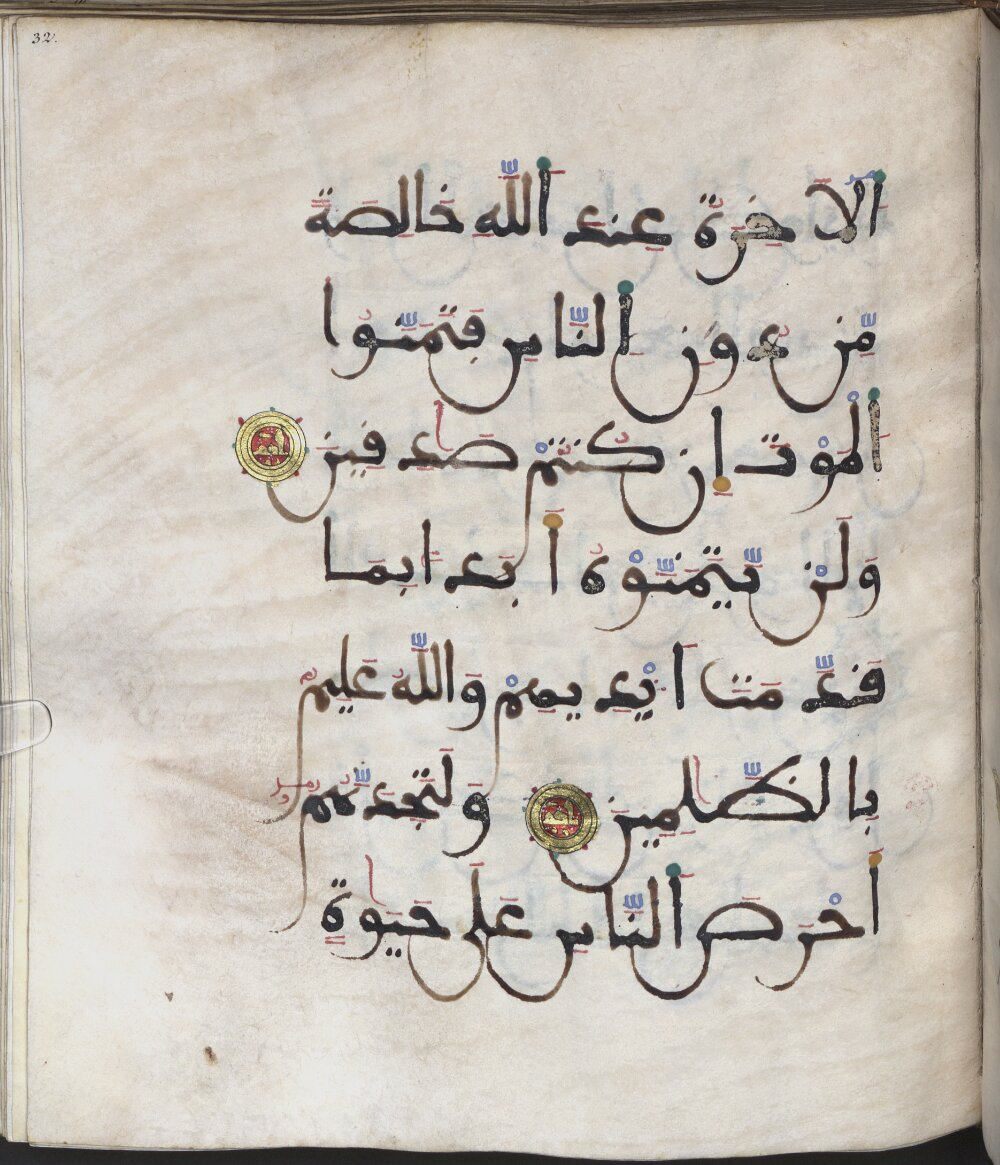 32.
الاخرة عند الله خالصة
مّن دون النّاس فتمنّوا
الموت ان كنتم صدقين
ولن يّتمنّوه أبدا بما
قدّمت ايديهم والله عليم
بالظّلمين ولتجدنّهم
احرص النّاس على حيوة